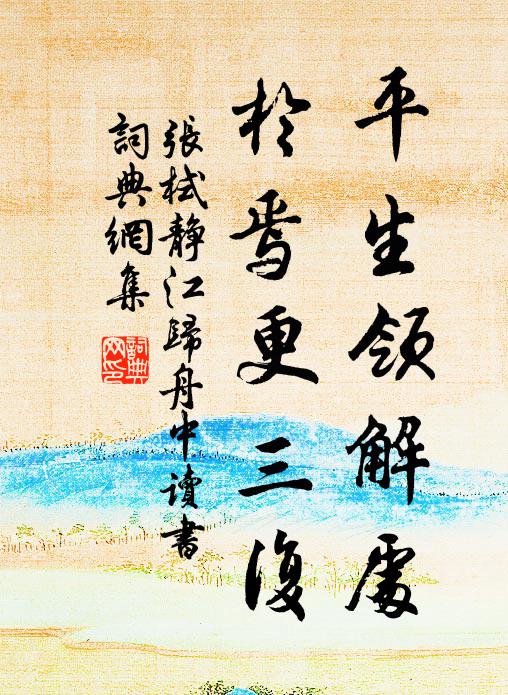 平生領解處
於焉更三復
張栻靜江歸舟中讀書
詞典網集
詞典網印